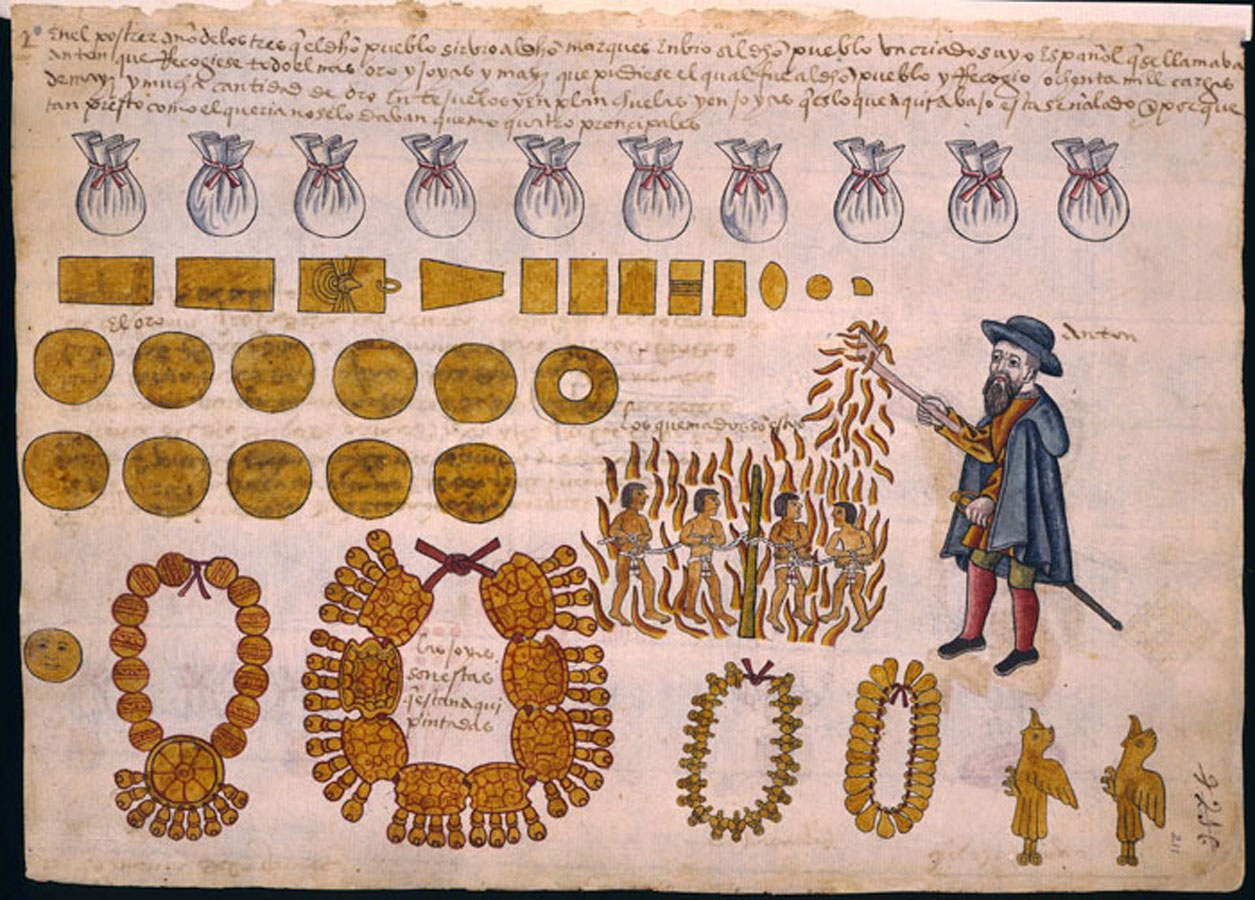 2° en el postrer año de los tres q̃ el dho pueblo sirvio al dho marques enbio al dho pueblo un criado suyo español q̃ se llamaba
anton que Recogiese todo el mas oro y joyas y mayz que pudiese el qual fue al dho pueblo y Recogio ochenta mill cargas
de mayz y mucha cantidad de oro en tejuelos y en planchuelas y en joyas q̃ es lo que aqui abajo esta señalado porque
tan presto como el queria no se lo daban quemo quatro prencipales
el oro
anton
los quemados sõ estos
las joyas
son estas
q̃ estan aqui
pintadas
211